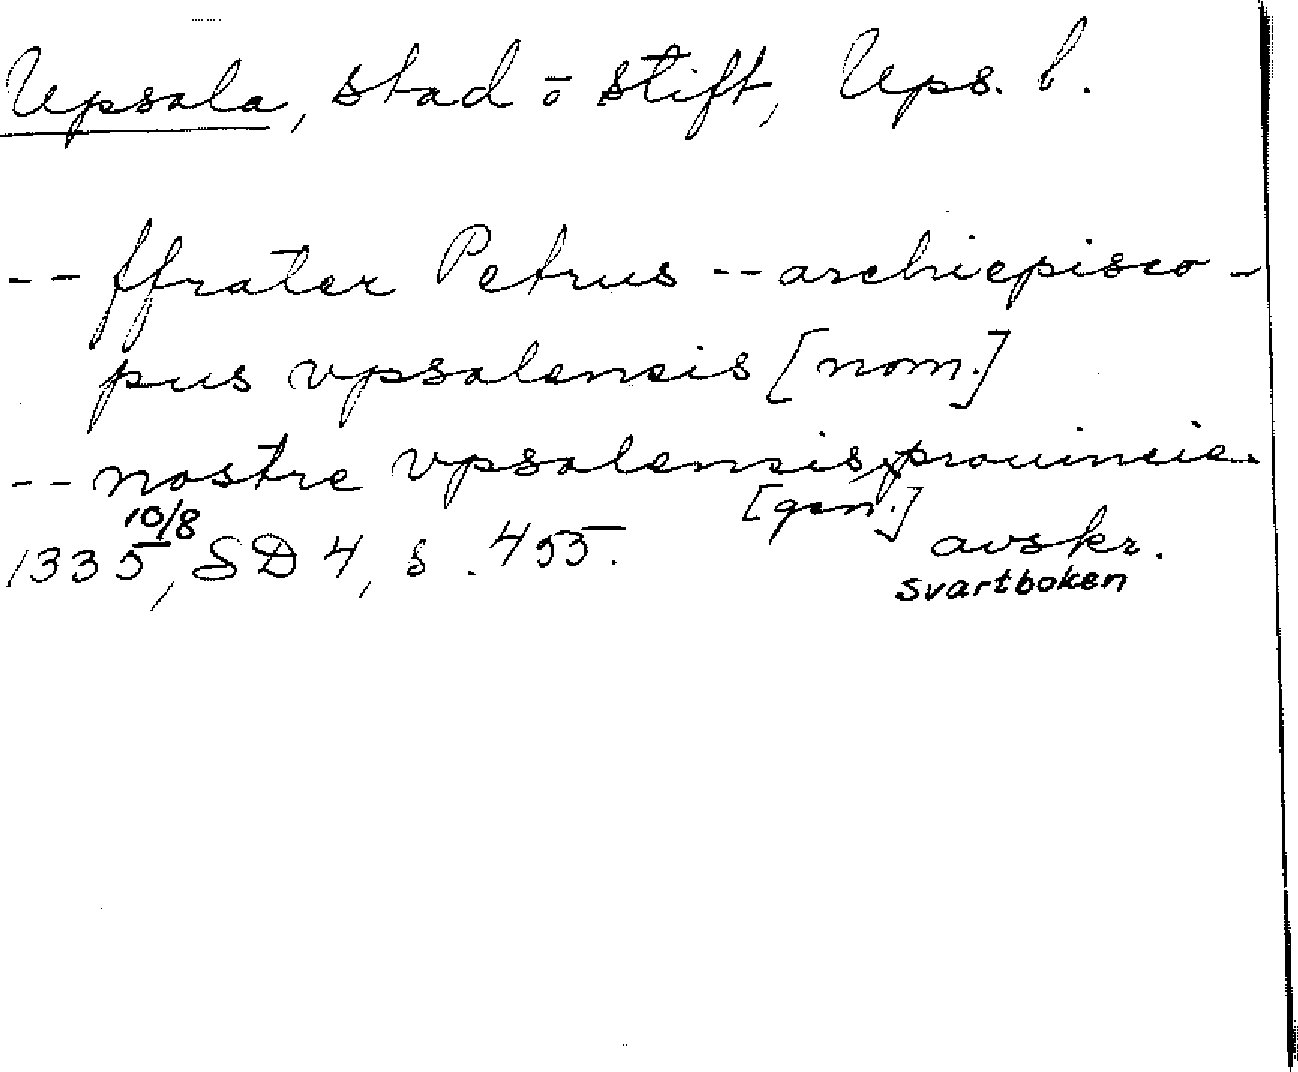 Upsala, stad o stift, Ups. l.
-- ffrater Petrus -- archiepisco-
pus vpsalensis [nom.]
-- nostre vpsalensis prouincie.
[gen.]
10/8
1335, SD 4, s. 455. avskr.
svartboken